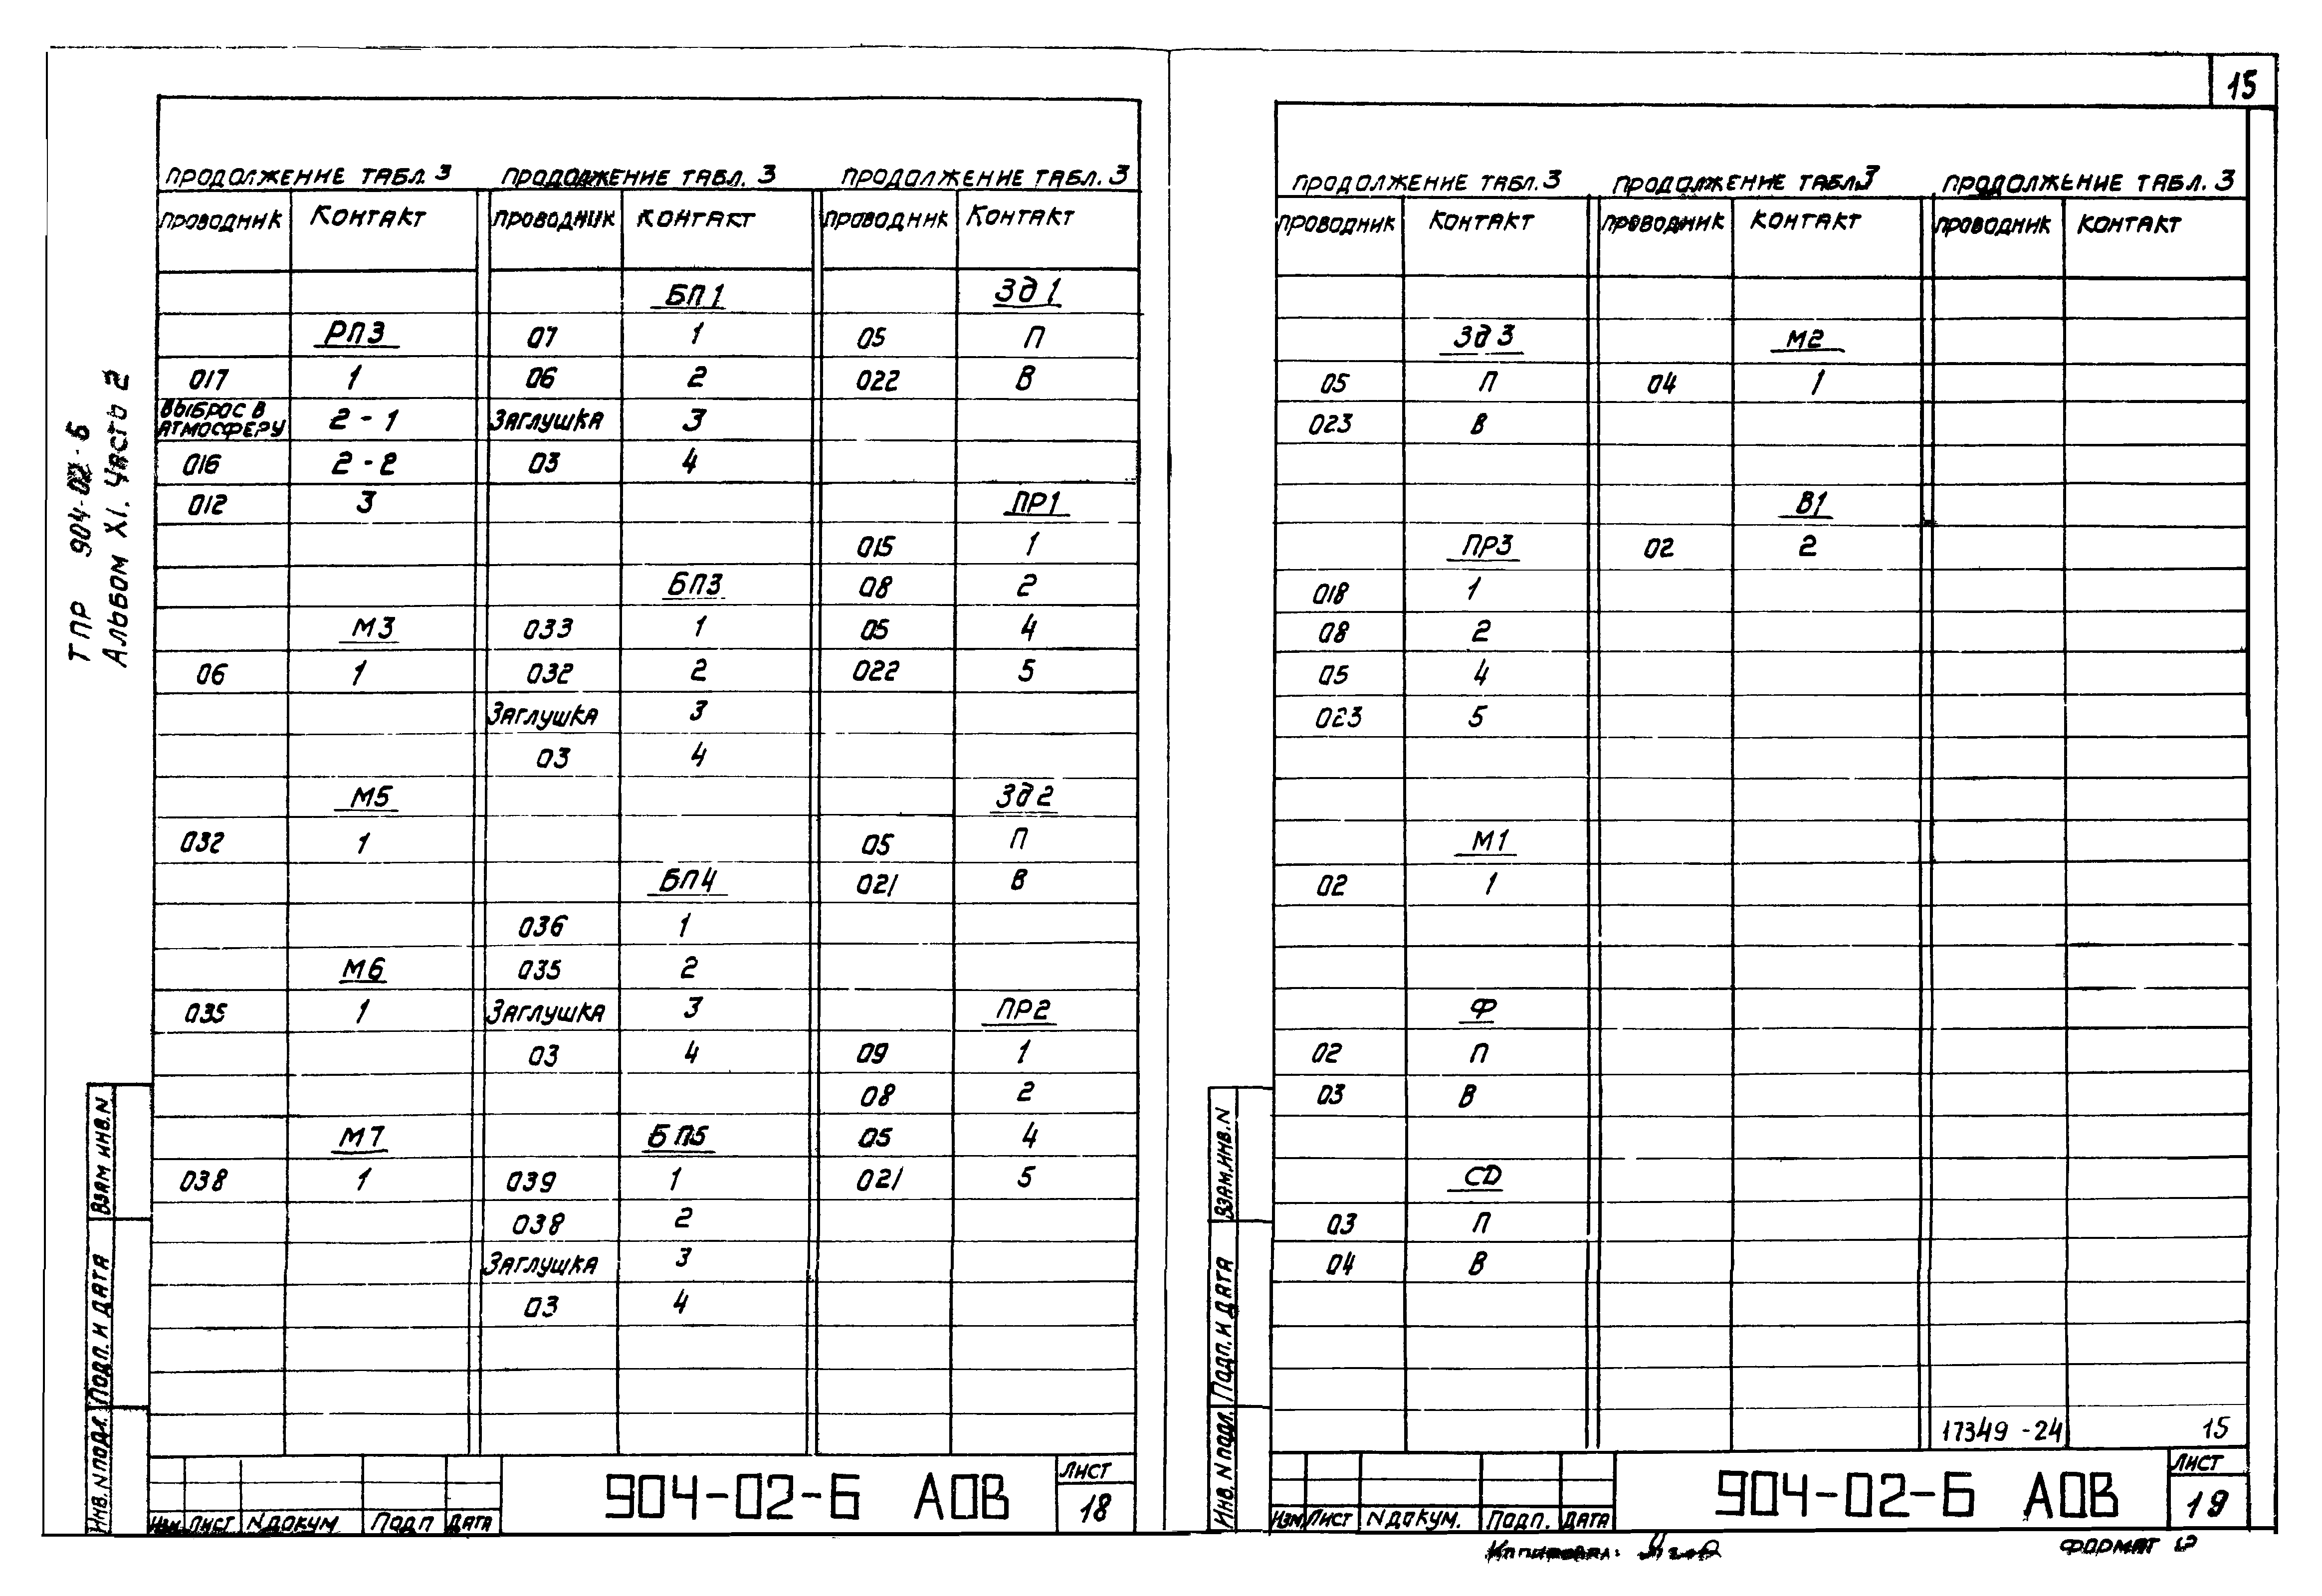 15
ТПР 904-02-Б
Альбом XI. Часть 2
Продолжение табл. 3 Продолжение табл. 3 Продолжение табл. 3
Проводник Контакт Проводник Контакт Проводник Контакт
БП1 Зд1
РП3 07 1 05 П
017 1 06 2 022 В
Выброс в
атмосферу 2-1 Заглушка 3
016 2-2 03 4
012 3 ПР1
015 1
БП3 08 2
М3 033 1 05 4
06 1 032 2 022 5
Заглушка 3
03 4
М5 Зд2
032 1 05 П
БП4 021 В
036 1
М6 035 2
035 1 Заглушка 3 ПР2
03 4 09 1
08 2
М7 БП5 05 4
038 1 039 1 021 5
038 2
Заглушка 3
03 4
Взам инв. N
Подп. и дата
Инв. N подл.
Изм Лист N докум Подп Дата
904-02-Б АОВ
Лист
18
Продолжение табл. 3 Продолжение табл 3 Продолжение табл. 3
Проводник Контакт Проводник Контакт Проводник Контакт
Зд3 М2
05 П 04 1
023 В
В1
ПР3 02 2
018 1
08 2
05 4
023 5
М1
02 1
Ф
02 П
03 В
СД
03 П
04 В
17349-24 15
Взам. инв. N
Подп. и дата
Инв. N подл.
Изм Лист N докум. Подп. Дата
904-02-Б АОВ
Лист
19
Копировал:
Формат